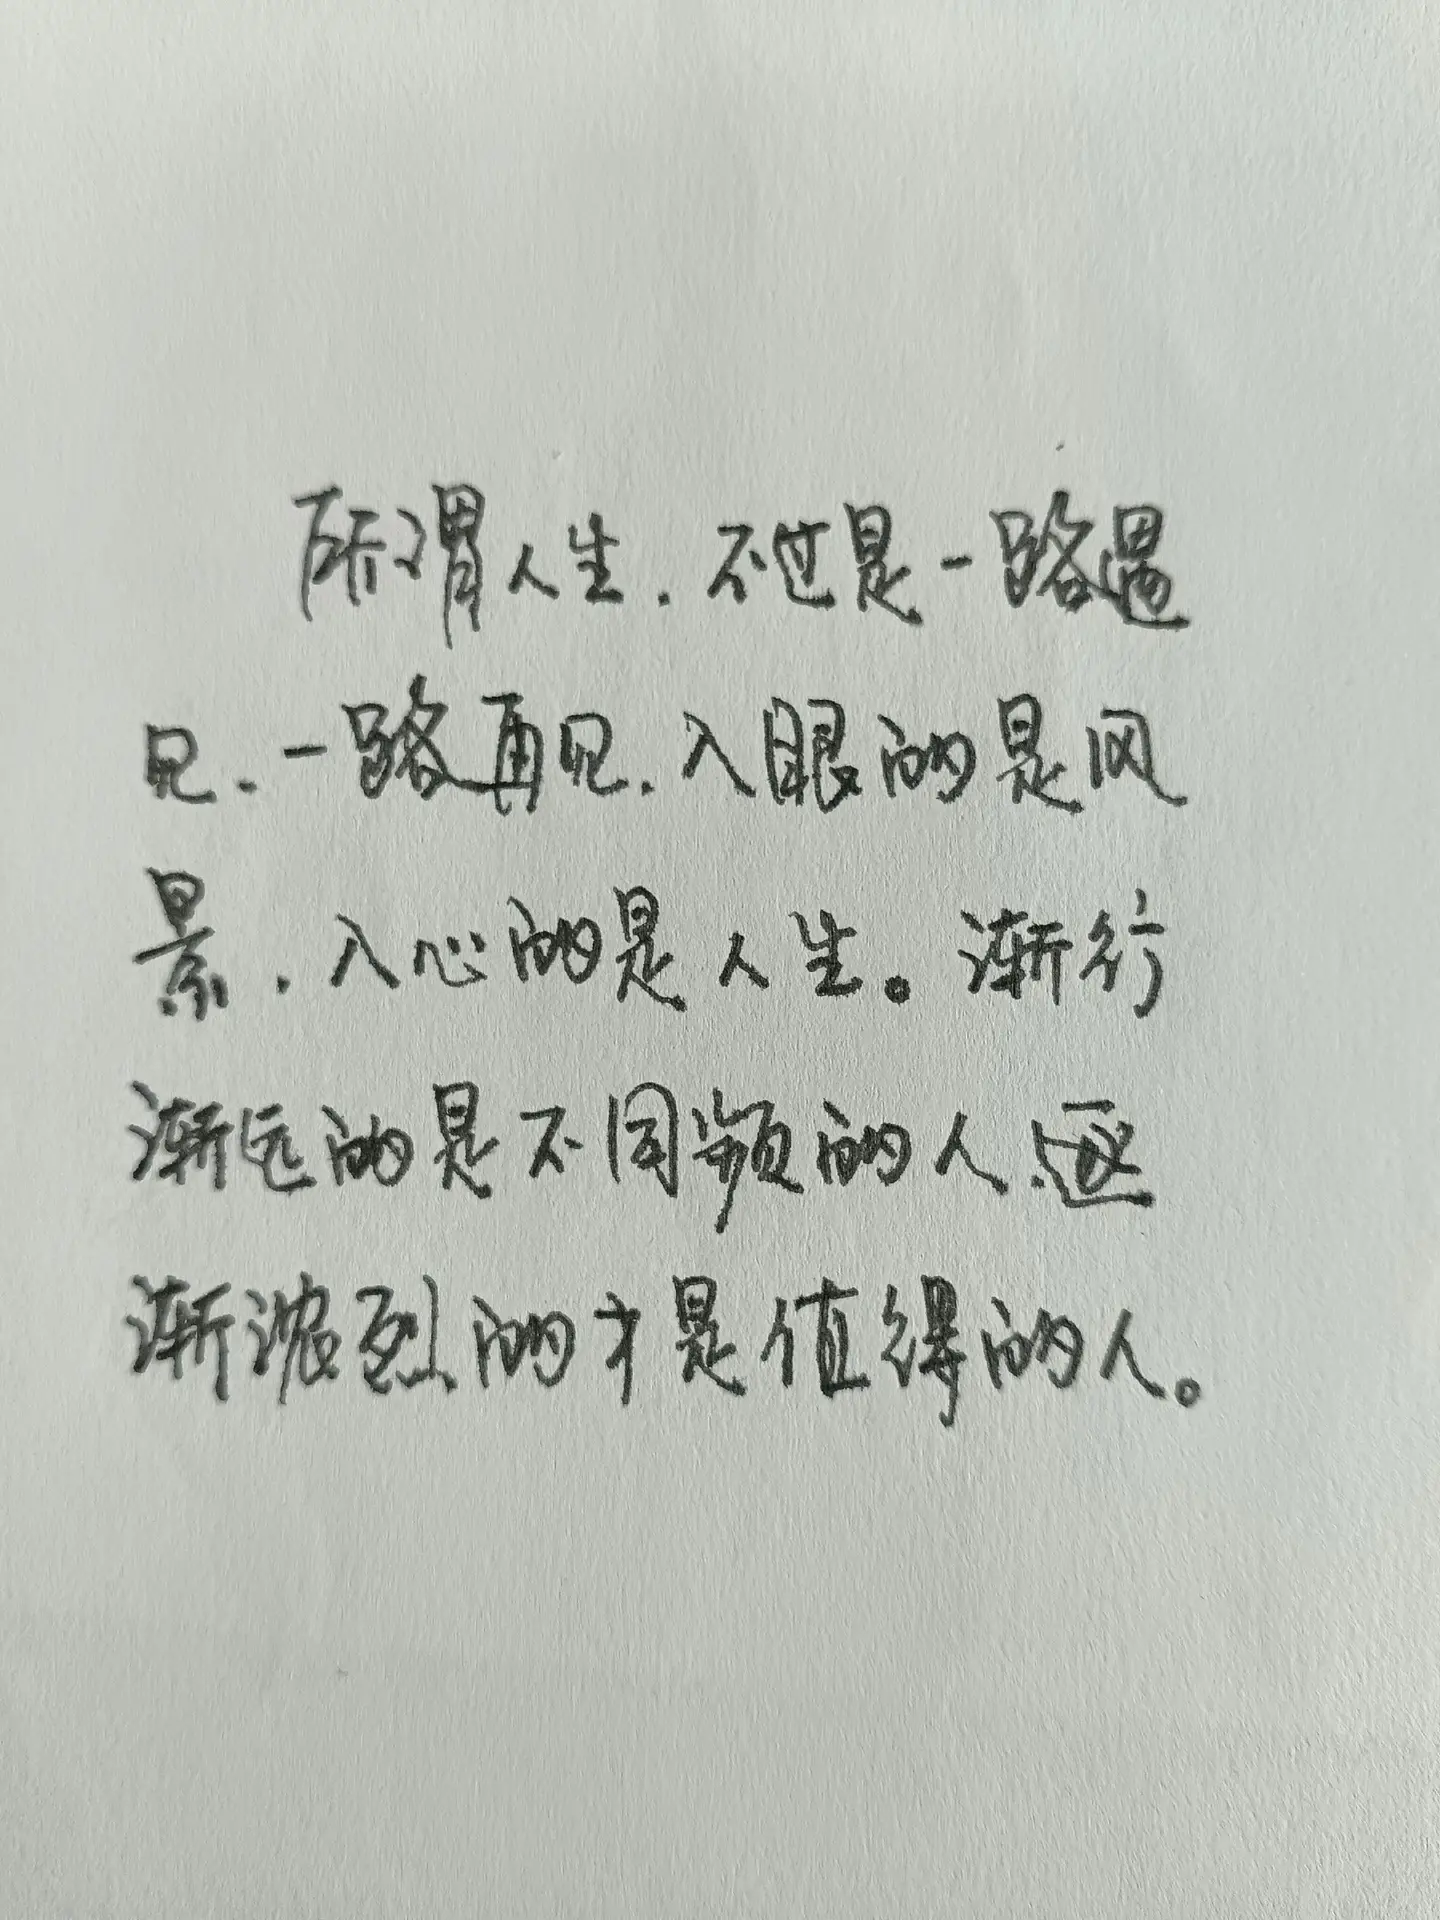 所谓人生，不过是一路遇
见，一路再见，入眼的是风
景，入心的是人生。渐行
渐远的是不同频的人，逐
渐浓烈的才是值得的人。